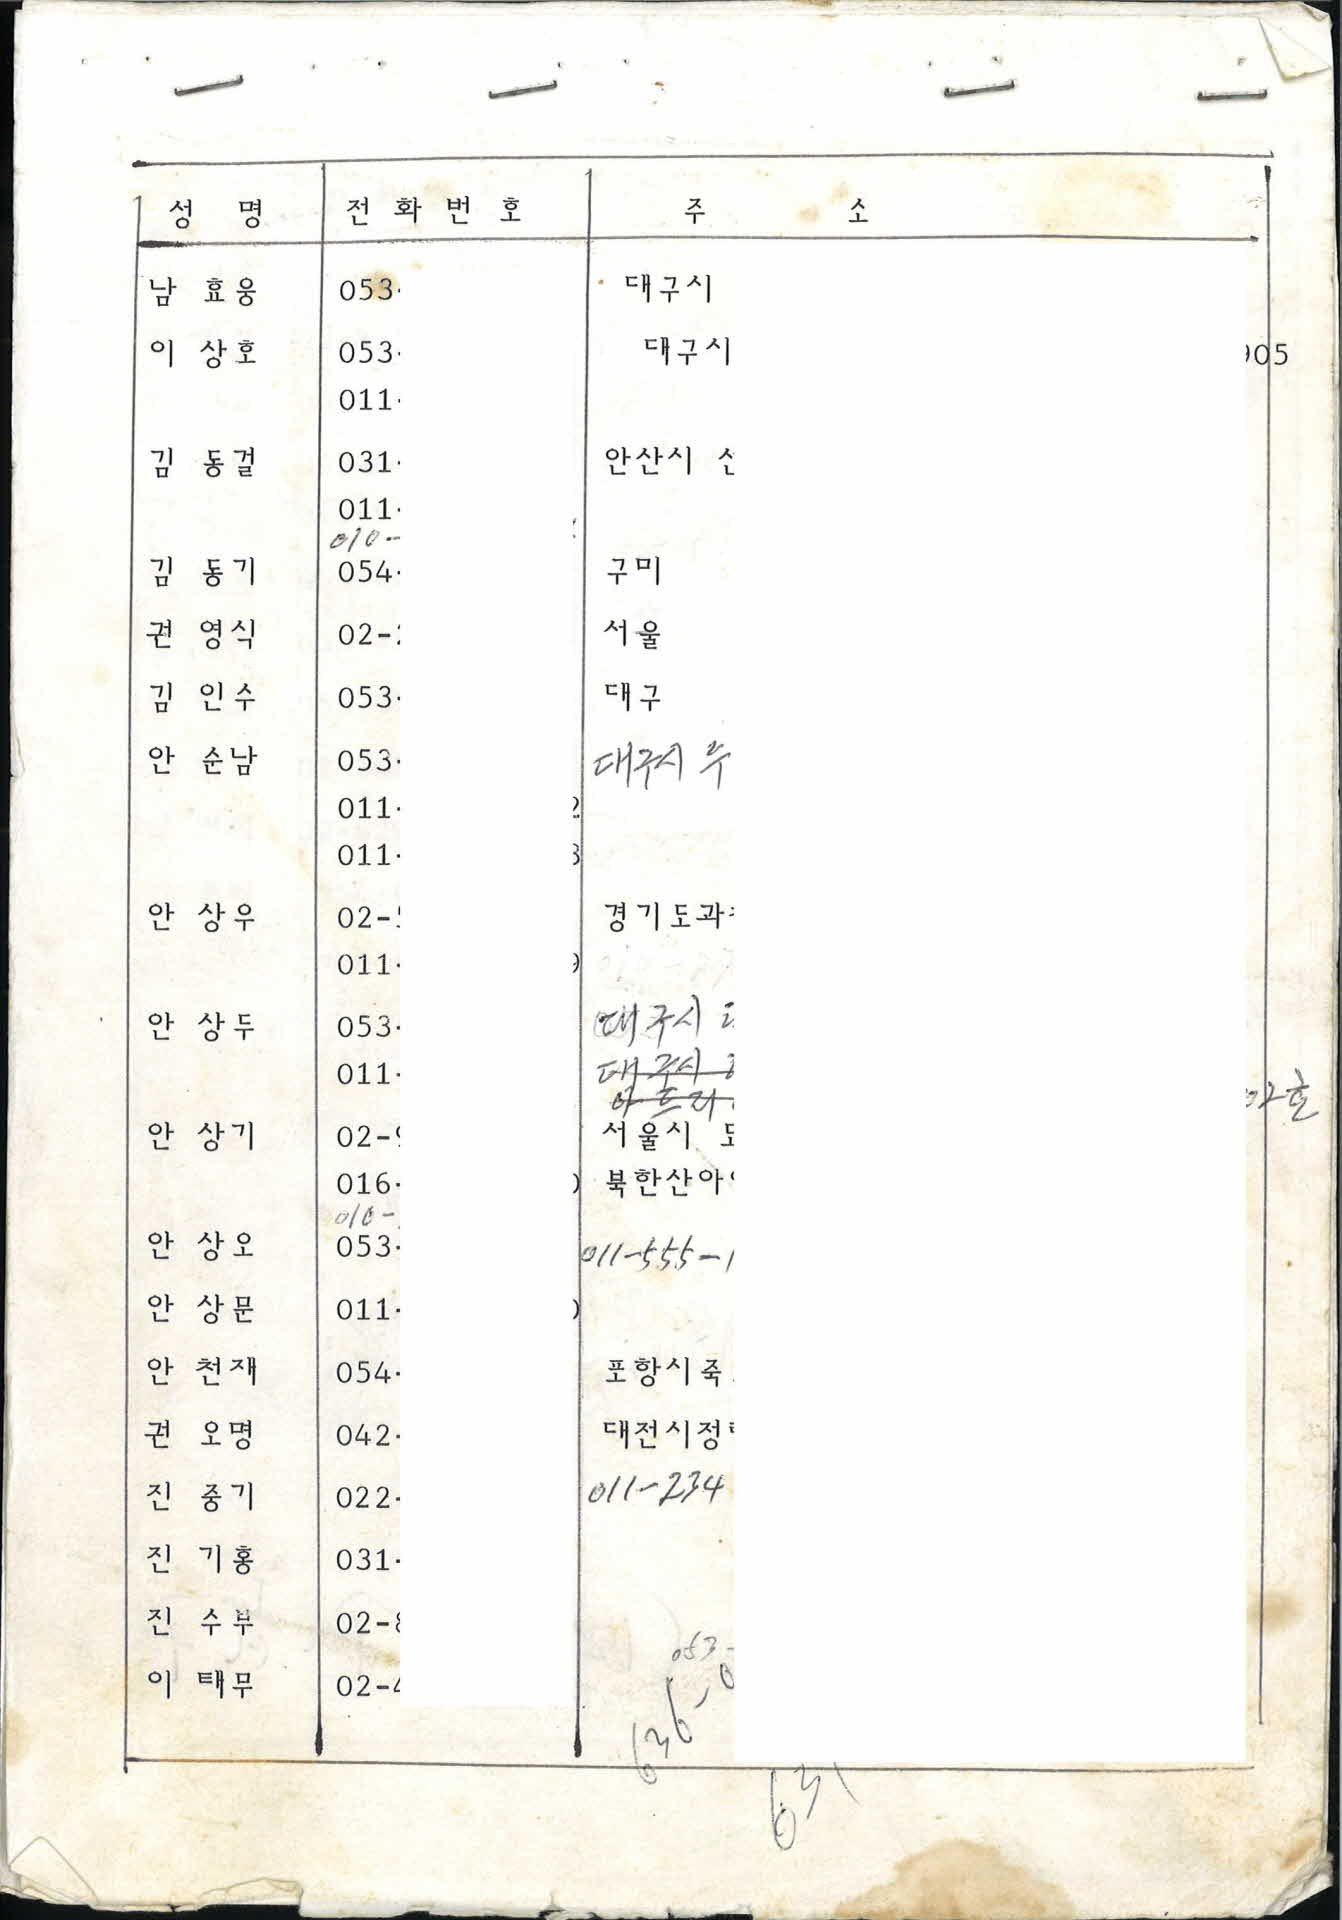 성 명 전 화 번 호 주 소
남 효웅 053- 대구시
이 상호 053- 대구시 905
011-
김 동걸 031- 안산시
011-
010-
김 동기 054- 구미
권 영식 02- 서울
김 인수 053- 대구
안 순남 053- 대구시 수
011- 2
011- 8
안 상우 02- 경기도과
011- 9
안 상두 053- 대구시
011- 대구시
02호
안 상기 02- 서울시
016- 북한산아
010-
안 상오 053- 011-555-1
안 상문 011-
안 천재 054- 포항시죽
권 오명 042- 대전시정
진 중기 022- 011-234
진 기홍 031-
진 수부 02-8
053-
이 태무 02-4
636-0
631